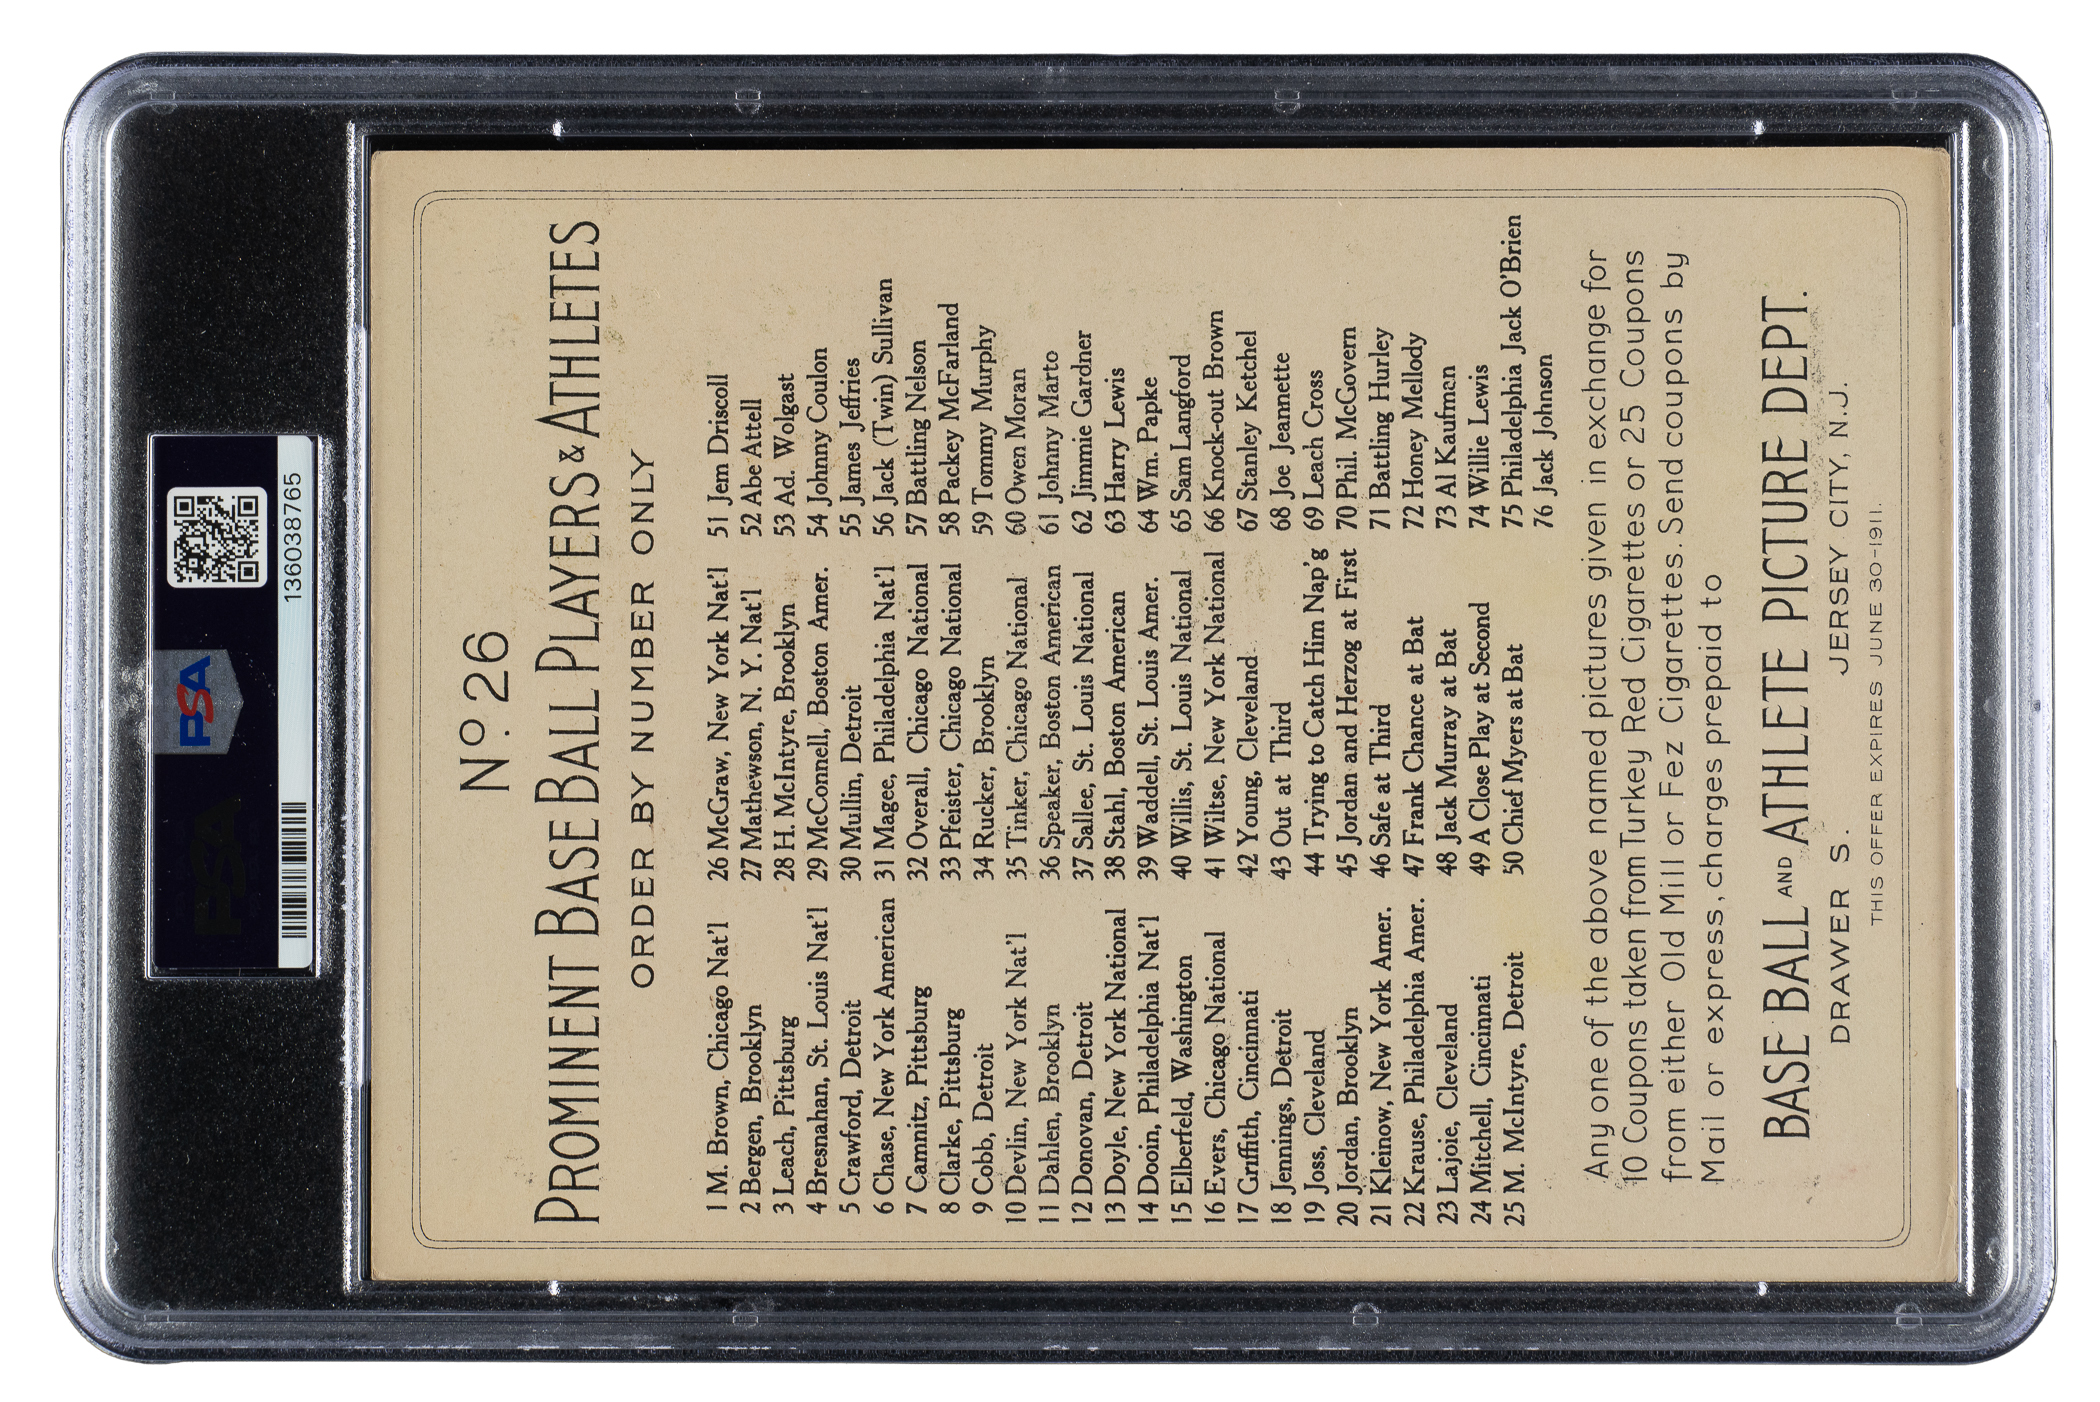 PSA
136038765
Nº. 26
PROMINENT BASE BALL PLAYERS & ATHLETES
ORDER BY NUMBER ONLY
1 M. Brown, Chicago Nat'l
2 Bergen, Brooklyn
3 Leach, Pittsburg
4 Bresnahan, St. Louis Nat'l
5 Crawford, Detroit
6 Chase, New York American
7 Camnitz, Pittsburg
8 Clarke, Pittsburg
9 Cobb, Detroit
10 Devlin, New York Nat'l
11 Dahlen, Brooklyn
12 Donovan, Detroit
13 Doyle, New York National
14 Dooin, Philadelphia Nat'l
15 Elberfeld, Washington
16 Evers, Chicago National
17 Griffith, Cincinnati
18 Jennings, Detroit
19 Joss, Cleveland
20 Jordan, Brooklyn
21 Kleinow, New York Amer.
22 Krause, Philadelphia Amer.
23 Lajoie, Cleveland
24 Mitchell, Cincinnati
25 M. McIntyre, Detroit
26 McGraw, New York Nat'l
27 Mathewson, N. Y. Nat'l
28 H. McIntyre, Brooklyn
29 McConnell, Boston Amer.
30 Mullin, Detroit
31 Magee, Philadelphia Nat'l
32 Overall, Chicago National
33 Pfeister, Chicago National
34 Rucker, Brooklyn
35 Tinker, Chicago National
36 Speaker, Boston American
37 Sallee, St. Louis National
38 Stahl, Boston American
39 Waddell, St. Louis Amer.
40 Willis, St. Louis National
41 Wiltse, New York National
42 Young, Cleveland
43 Out at Third
44 Trying to Catch Him Nap'g
45 Jordan and Herzog at First
46 Safe at Third
47 Frank Chance at Bat
48 Jack Murray at Bat
49 A Close Play at Second
50 Chief Myers at Bat
51 Jem Driscoll
52 Abe Attell
53 Ad. Wolgast
54 Johnny Coulon
55 James Jeffries
56 Jack (Twin) Sullivan
57 Battling Nelson
58 Packey McFarland
59 Tommy Murphy
60 Owen Moran
61 Johnny Marto
62 Jimmie Gardner
63 Harry Lewis
64 Wm. Papke
65 Sam Langford
66 Knock-out Brown
67 Stanley Ketchel
68 Joe Jeannette
69 Leach Cross
70 Phil. McGovern
71 Battling Hurley
72 Honey Mellody
73 Al Kaufman
74 Willie Lewis
75 Philadelphia Jack O'Brien
76 Jack Johnson
Any one of the above named pictures given in exchange for
10 Coupons taken from Turkey Red Cigarettes or 25 Coupons
from either Old Mill or Fez Cigarettes. Send coupons by
Mail or express, charges prepaid to
BASE BALL AND ATHLETE PICTURE DEPT.
DRAWER S. JERSEY CITY, N.J.
THIS OFFER EXPIRES JUNE 30-1911.